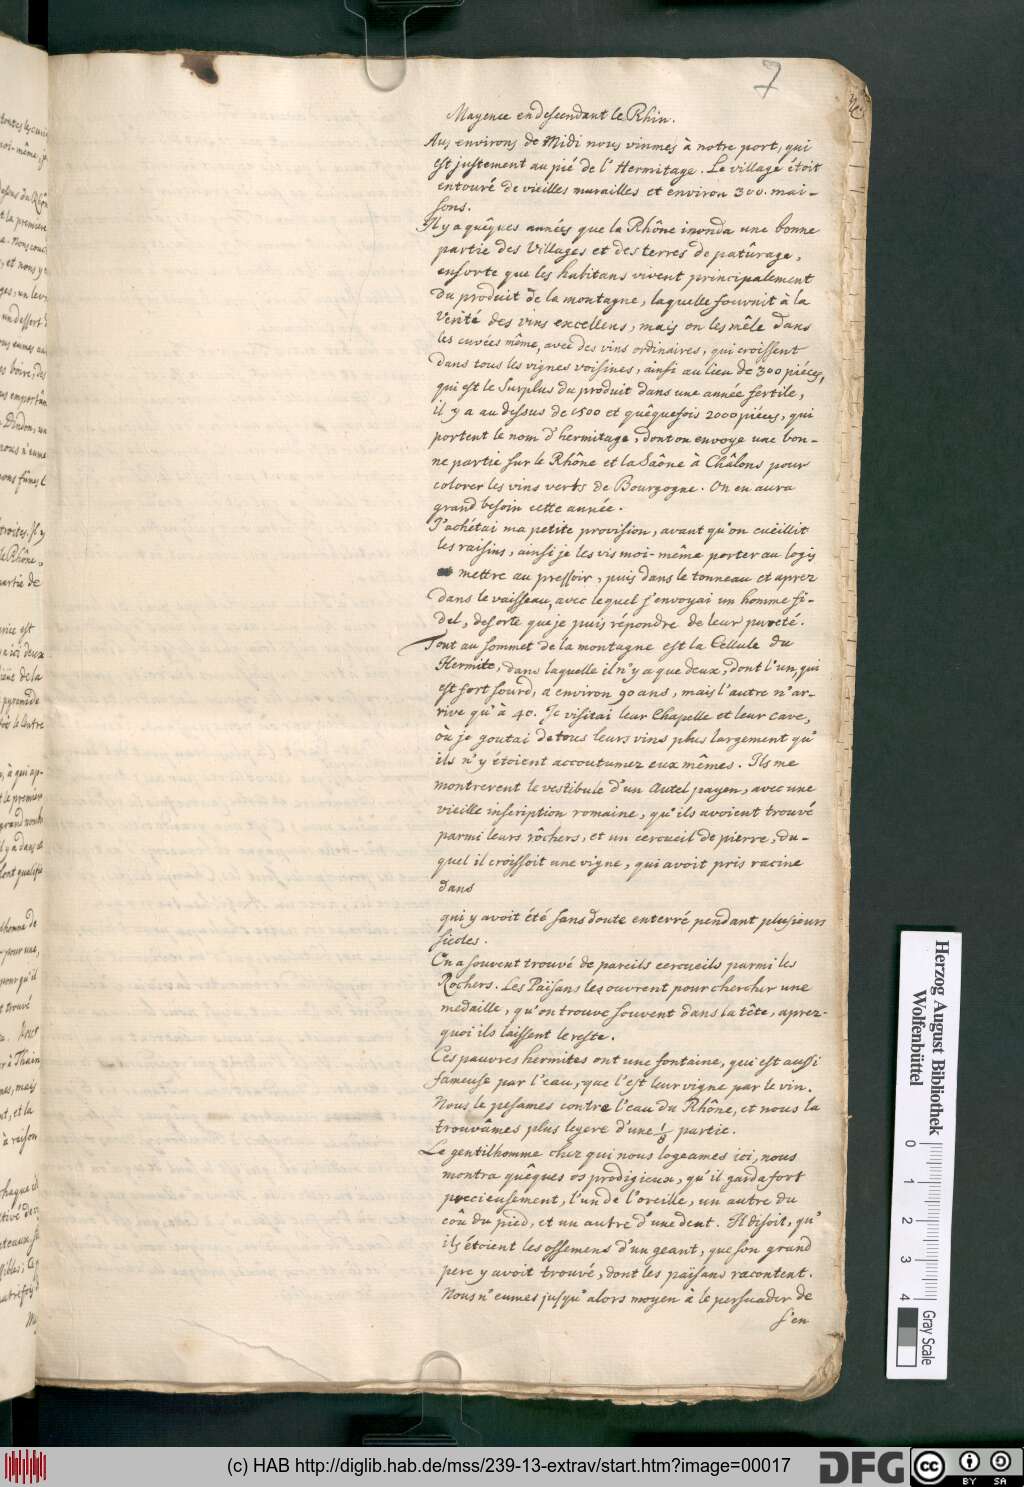 7
Mayence en descendant le Rhin.
Aux environs de Midi nous vinmes à notre port, qui
est justement au pié de l'Hermitage. Le village étoit
entouré de vieilles murailles et environ 300. mai-
sons.
Il y a quêques années que la Rhône inonda une bonne
partie des Villages et des terres de patûrage,
ensorte que les habitans vivent principalement
du produit de la montagne, laquelle fournit à la
verité des vins excellens, mais on les mêle dans
les cuvées même, avec des vins ordinaires, qui croissent
dans tous les vignes voisines, ainsi au lieu de 300 piéces,
qui est le Surplus du produit dans une année fertile,
il y a au dessus de 1500 et quêquefois 2000 piéces, qui
portent le nom d'hermitage, dont on envoye une bon-
ne partie sur le Rhône et la Saône à Châlons pour
colorer les vins verts de Bourgogne. On en aura
grand besoin cette année.
J'achétai ma petite provision, avant qu'on cuëillit
les raisins, ainsi je les vis moi-même porter au logis
mettre au pressoir, puis dans le tonneau et aprez
dans le vaisseau, avec lequel j'envoyai un homme fi-
del, desorte que je puis répondre de leur pureté.
Tout au sommet de la montagne est la Cellule du
Hermite, dans laquelle il n'y a que deux, dont l'un, qui
est fort sourd, a environ 90 ans, mais l'autre n'ar-
rive qu'à 40. Je visitai leur Chapelle et leur cave,
où je goutai de tous leurs vins plus largement qu'
ils n'y étoient accoutumez eux mêmes. Ils me
montrerent le vestibule d'un Autel payen, avec une
vieille inscription romaine, qu'ils avoient trouvé
parmi leurs rôchers, et un cercueil de pierre, du-
quel il croissoit une vigne, qui avoit pris racine
dans
qui y avoit été sans doute enterré pendant plusieurs
siecles.
On a souvent trouvé de pareils cercueils parmi les
Rochers. Les Païsans les ouvrent pour chercher une
medaille, qu'on trouve souvent dans la tête, aprez-
quoi ils laissent le reste.
Ces pauvres hermites ont une fontaine, qui est aussi
fameuse par l'eau, que l'est leur vigne par le vin.
Nous le pesames contre l'eau du Rhône, et nous la
trouvâmes plus legere d'une 1/8 partie.
Le gentilhomme chez qui nous logeames ici, nous
montra quêques os prodigieux, qu'il garda fort
precieusement, l'un de l'oreille, un autre du
coû du pied, et un autre d'une dent. Il disoit, qu'
ils étoient les ossemens d'un geant, que son grand
pere y avoit trouvé, dont les païsans racontent.
Nous n'eumes jusqu'alors moyen à le persuader de
s'en
Herzog August Bibliothek
Wolfenbüttel
0 1 2 3 4
Gray Scale
(c) HAB http://diglib.hab.de/mss/239-13-extrav/start.htm?image=00017
DFG
cc BY SA